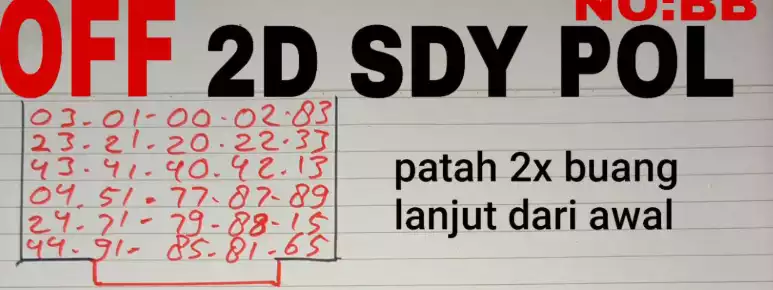 NO:BB
OFF 2D SDY POL
03-01-00-02.83
23-21.20.22.33
43-41.40.42.13
04.51.77.87-89
24-71-79-88-15
44-91-85.81.65
patah 2x buang
lanjut dari awal